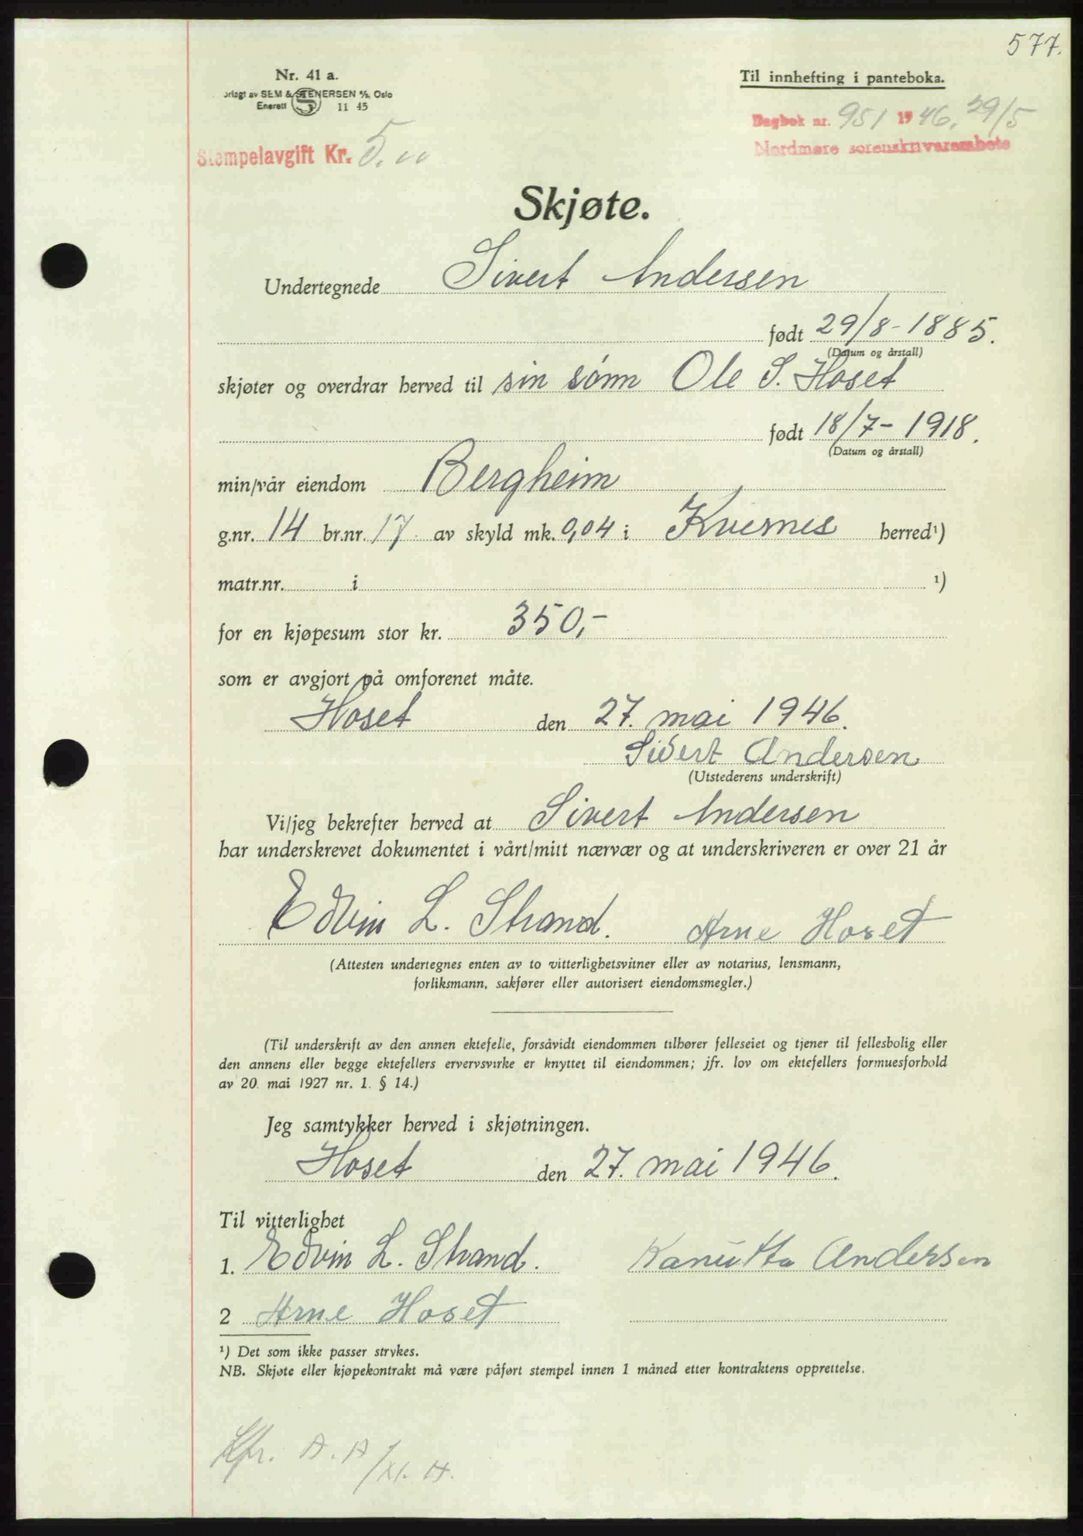 577.
Nr. 41 a.
Til innhefting i panteboka.
orlagt av SEM & STENERSEN A/S, Oslo
Enerett S 11 45
Dagbok nr. 951 1946. 29/5
Nordmøre sorenskriverembete
Stempelavgift Kr. 5.00
Skjøte.
Undertegnede Sivert Andersen
født 29/8-1885.
(Datum og årstall)
skjøter og overdrar herved til sin sönn Ole S. Hoset
født 18/7-1918.
(Datum og årstall)
min/vår eiendom Bergheim
g.nr. 14 br.nr. 17 av skyld mk. 0,04 i Kvernes herred¹)
matr.nr. i ¹)
for en kjøpesum stor kr. 350,-
som er avgjort på omforenet måte.
Hoset den 27. mai 1946.
Sivert Andersen
(Utstederens underskrift)
Vi/jeg bekrefter herved at Sivert Andersen
har underskrevet dokumentet i vårt/mitt nærvær og at underskriveren er over 21 år
Edvin L. Strand. Arne Hoset
(Attesten undertegnes enten av to vitterlighetsvitner eller av notarius, lensmann,
forliksmann, sakfører eller autorisert eiendomsmegler.)
(Til underskrift av den annen ektefelle, forsåvidt eiendommen tilhører felleseiet og tjener til fellesbolig eller
den annens eller begge ektefellers ervervsvirke er knyttet til eiendommen; jfr. lov om ektefellers formuesforhold
av 20. mai 1927 nr. 1. § 14.)
Jeg samtykker herved i skjøtningen.
Hoset den 27. mai 1946.
Til vitterlighet
1. Edvin L. Strand. Kanutta Andersen
2 Arne Hoset
¹) Det som ikke passer strykes.
NB. Skjøte eller kjøpekontrakt må være påført stempel innen 1 måned etter kontraktens opprettelse.